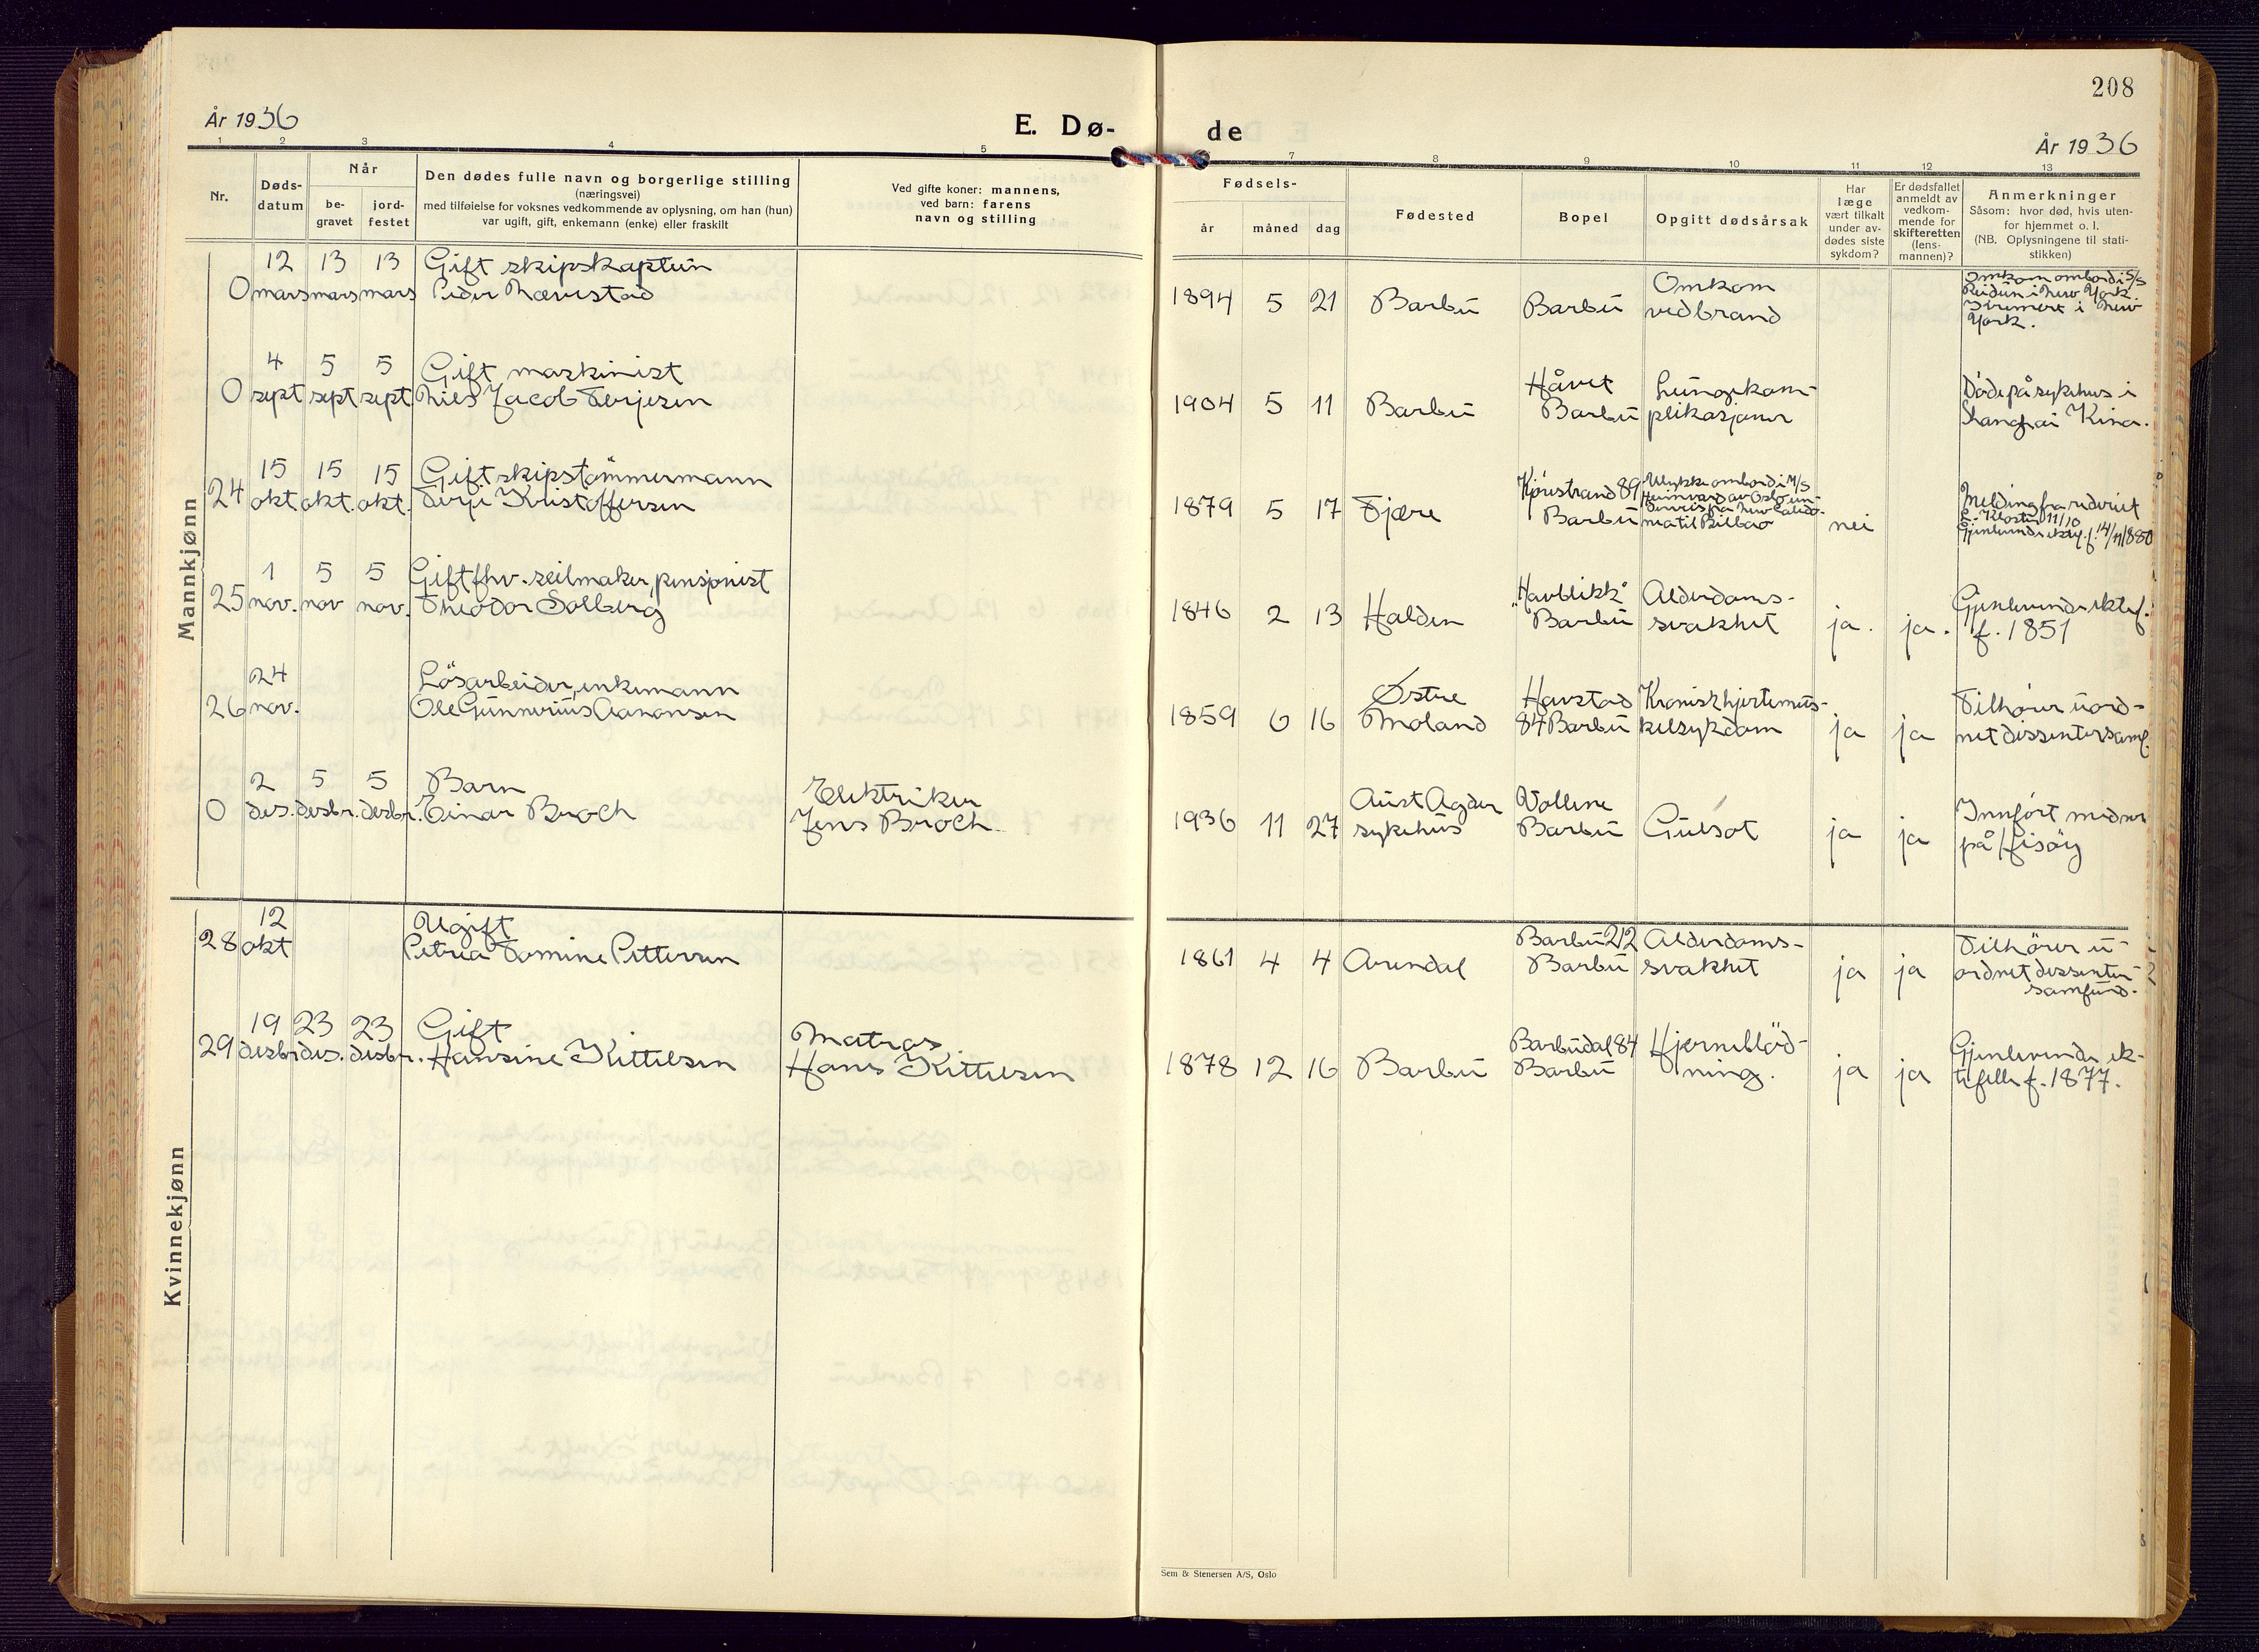 208
År 1936
E. Dø-
de
År 1936
1 2 3 4 5 7 8 9 10 11 12 13
Nr.
Døds-
datum
Når
be-
gravet
jord-
festet
Den dødes fulle navn og borgerlige stilling
(næringsvei)
med tilføielse for voksnes vedkommende av oplysning, om han (hun)
var ugift, gift, enkemann (enke) eller fraskilt
Ved gifte koner: mannens,
ved barn: farens
navn og stilling
Fødsels-
år måned dag
Fødested
Bopel
Opgitt dødsårsak
Har
læge
vært tilkalt
under av-
dødes siste
sykdom?
Er dødsfallet
anmeldt av
vedkom-
mende for
skifteretten
(lens-
mannen)?
Anmerkninger
Såsom: hvor død, hvis uten-
for hjemmet o. l.
(NB. Oplysningene til stati-
stikken)
Mannkjønn
12 13 13 Gift skipskaptein
0 mars mars mars Peder Næverstad
1894 5 21 Barbu Barbu
Omkom
ved brand
Omkom ombord i S/S
Reidun i New York.
Kremert i New
York.
4 5 5 Gift maskinist
0 sept sept sept Niels Jacob Terjesen
1904 5 11 Barbu
Håvet
Barbu
Lungekom-
plikasjoner
Døde på sykehus i
Shanghai Kina.
15 15 15 Gift skipstømmermann
24 okt okt. okt. Terje Kristoffersen
1879 5 17 Fjære
Kjørestrand 89
Barbu
Ulykke ombord i M/S
Heimvard av Oslo un-
derveis fra New Caledo-
nia til Bilbao
nei
Melding fra rederiet
E. Kloster 11/10
Gjenlevende ektef. f. 14/11 1880
1 5 5 Gift fhv. seilmaker, pensjonist
25 nov. nov nov. Theodor Solberg
1846 2 13 Halden
"Havblikk"
Barbu
Alderdoms-
svakhet
ja. ja.
Gjenlevende ektef.
f. 1851
24 Løsarbeider, enkemann
26 nov. Ole Gunnerius Aanonsen
1859 6 16
Østre
Moland
Havstad
84 Barbu
Kronisk hjertemus-
kelsykdom
ja ja
Tilhører uord-
net dissentersamf.
2 5 5 Barn
0 des. desbr. desbr. Einar Broch
Elektriker
Jens Broch
1936 11 27
Aust Agder
sykehus
Vollene
Barbu
Gulsot
ja ja
Innført med nr
på Hisøy
Kvinnekjønn
12 Ugift
28 okt Petrea Tomine Pettersen
1861 4 4 Arendal
Barbu 212
Barbu
Alderdoms-
svakhet
ja ja
Tilhører u-
ordnet dissenter-
samfund.
19 23 23 Gift
29 desbr des. desbr. Hansine Kittelsen
Matros
Hans Kittelsen
1878 12 16 Barbu
Barbudal 84
Barbu
Hjerneblød-
ning.
ja ja
Gjenlevende ek-
tefelle f. 1877.
Sem & Stenersen A/S, Oslo